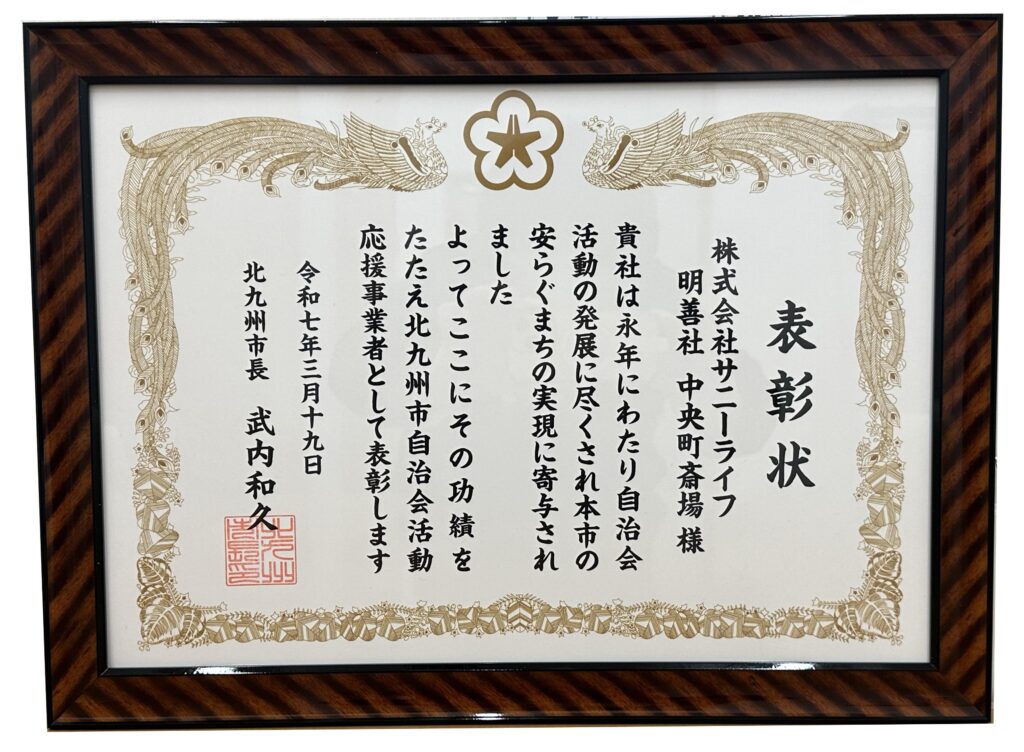 表彰状
株式会社サニーライフ
明善社 中央町斎場 様
貴社は永年にわたり自治会
活動の発展に尽くされ本市の
安らぐまちの実現に寄与され
ました
よってここにその功績を
たたえ北九州市自治会活動
応援事業者として表彰します
令和七年三月十九日
北九州市長 武内和久
北九州
市長印